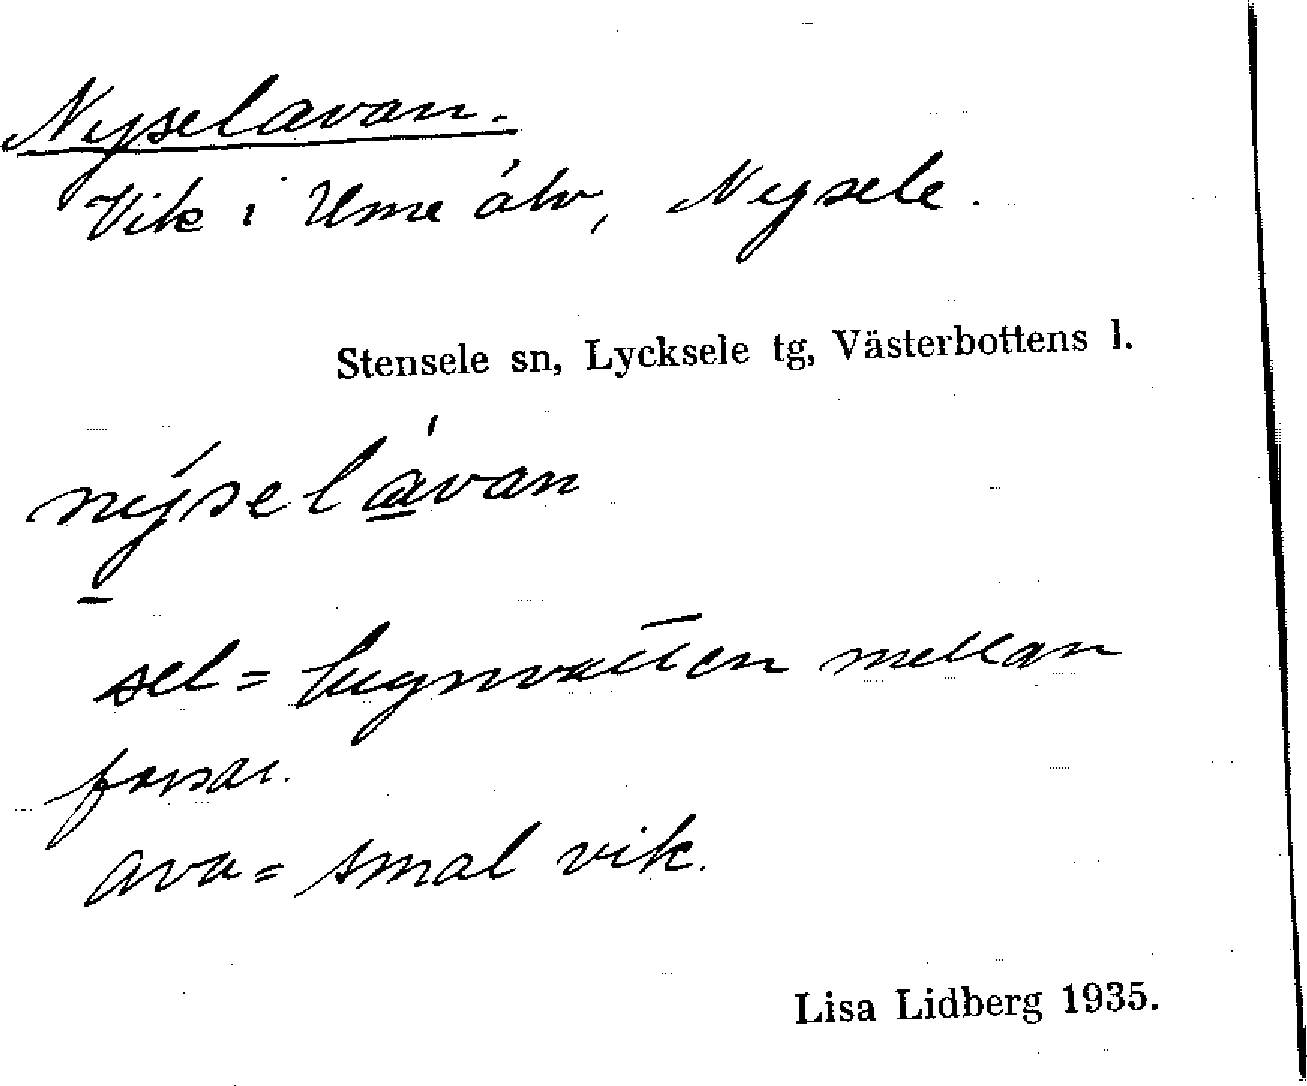 Nyselavan.
Vik i Ume älv, Nysele.
Stensele sn, Lycksele tg, Västerbottens l.
nýselávan
sel = lugnvatten mellan
forsar.
ava = smal vik.
Lisa Lidberg 1935.